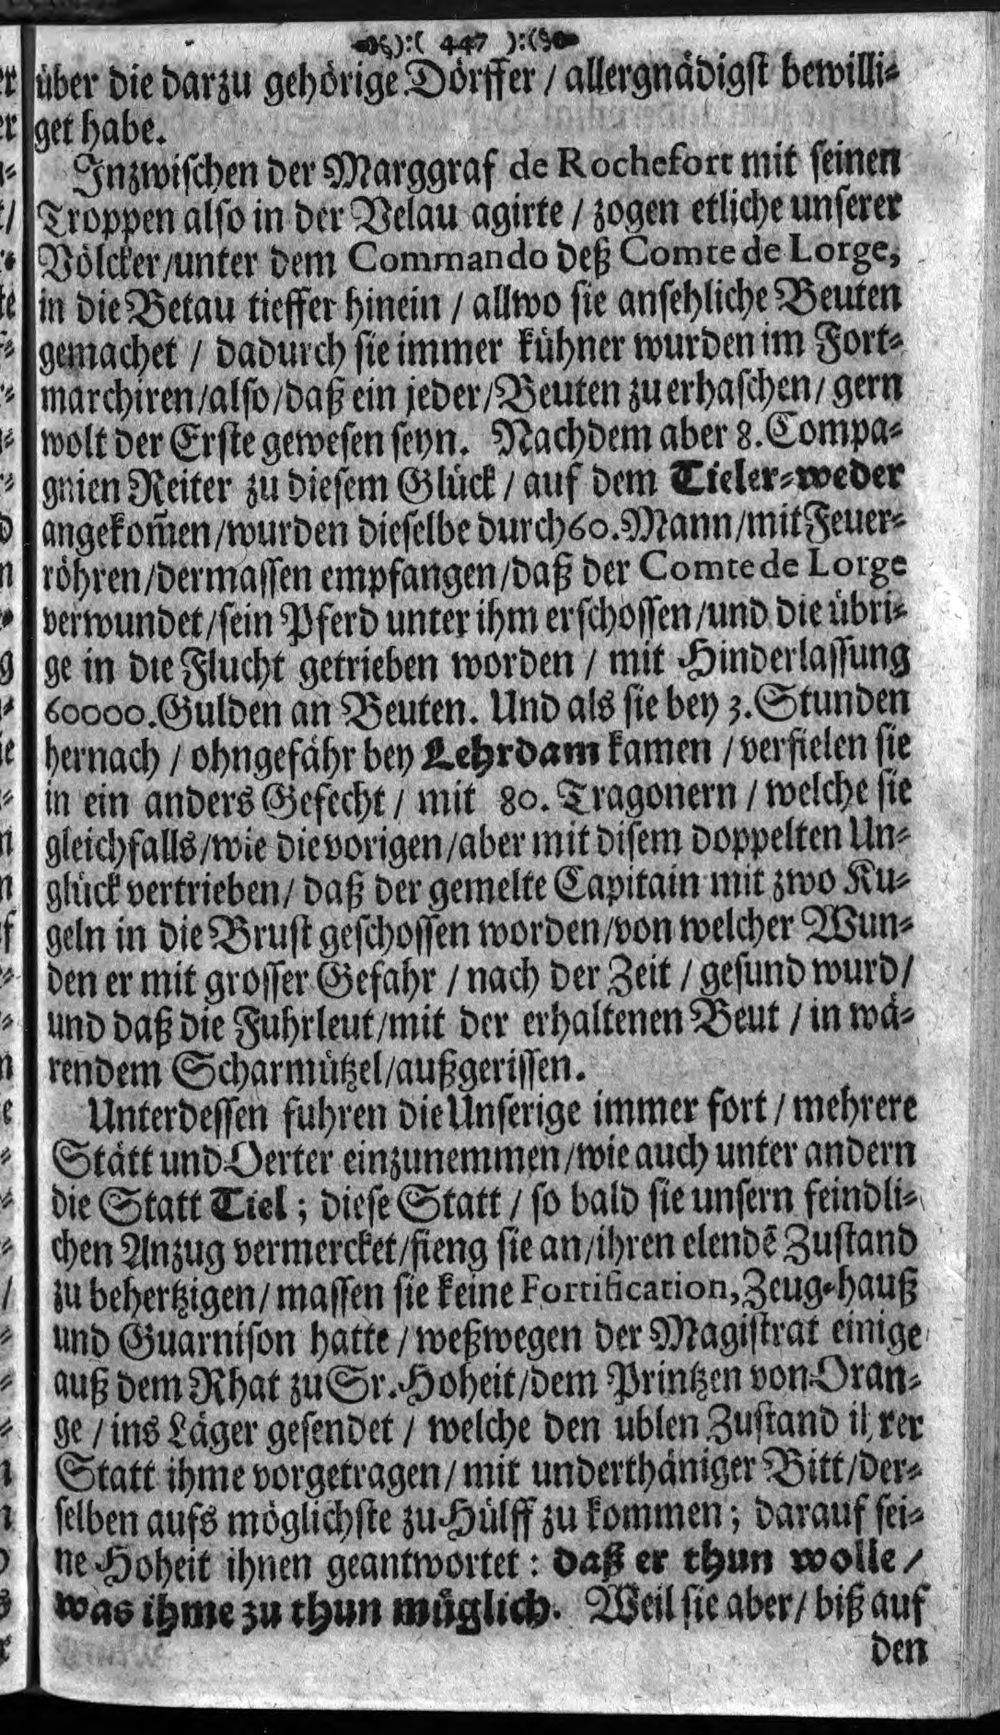 ):( 447 ):(
über die darzu gehörige Dörffer / allergnädigst bewilli⸗
get habe.
Inzwischen der Marggraf de Rochefort mit seinen
Troppen also in der Velau agirte / zogen etliche unserer
Völcker / unter dem Commando deß Comte de Lorge,
in die Betau tieffer hinein / allwo sie ansehliche Beuten
gemachet / dadurch sie immer kühner wurden im Fort⸗
marchiren / also / daß ein jeder / Beuten zu erhaschen / gern
wolt der Erste gewesen seyn. Nachdem aber 8. Compa⸗
gnien Reiter zu diesem Glück / auf dem Tieler⸗weder
angekom̃en / wurden dieselbe durch 60. Mann / mit Feuer⸗
röhren / dermassen empfangen / daß der Comte de Lorge
verwundet / sein Pferd unter ihm erschossen / und die übri⸗
ge in die Flucht getrieben worden / mit Hinderlassung
60000. Gulden an Beuten. Und als sie bey 3. Stunden
hernach / ohngefähr bey Lehrdam kamen / verfielen sie
in ein anders Gefecht / mit 80. Tragonern / welche sie
gleichfalls / wie die vorigen / aber mit disem doppelten Un⸗
glück vertrieben / daß der gemelte Capitain mit zwo Ku⸗
geln in die Brust geschossen worden / von welcher Wun⸗
den er mit grosser Gefahr / nach der Zeit / gesund wurd /
und daß die Fuhrleut / mit der erhaltenen Beut / in wä⸗
rendem Scharmützel / außgerissen.
Unterdessen fuhren die Unserige immer fort / mehrere
Stätt und Oerter einzunemmen / wie auch unter andern
die Statt Tiel; diese Statt / so bald sie unsern feindli⸗
chen Anzug vermercket / fieng sie an / ihren elendẽ Zustand
zu behertzigen / massen sie keine Fortification, Zeug⸗hauß
und Guarnison hatte / weßwegen der Magistrat einige
auß dem Rhat zu Sr. Hoheit / dem Printzen von Oran⸗
ge / ins Läger gesendet / welche den ublen Zustand ihrer
Statt ihme vorgetragen / mit underthäniger Bitt / der⸗
selben aufs möglichste zu Hülff zu kommen; darauf sei⸗
ne Hoheit ihnen geantwortet: daß er thun wolle /
was ihme zu thun müglich. Weil sie aber / biß auf
den